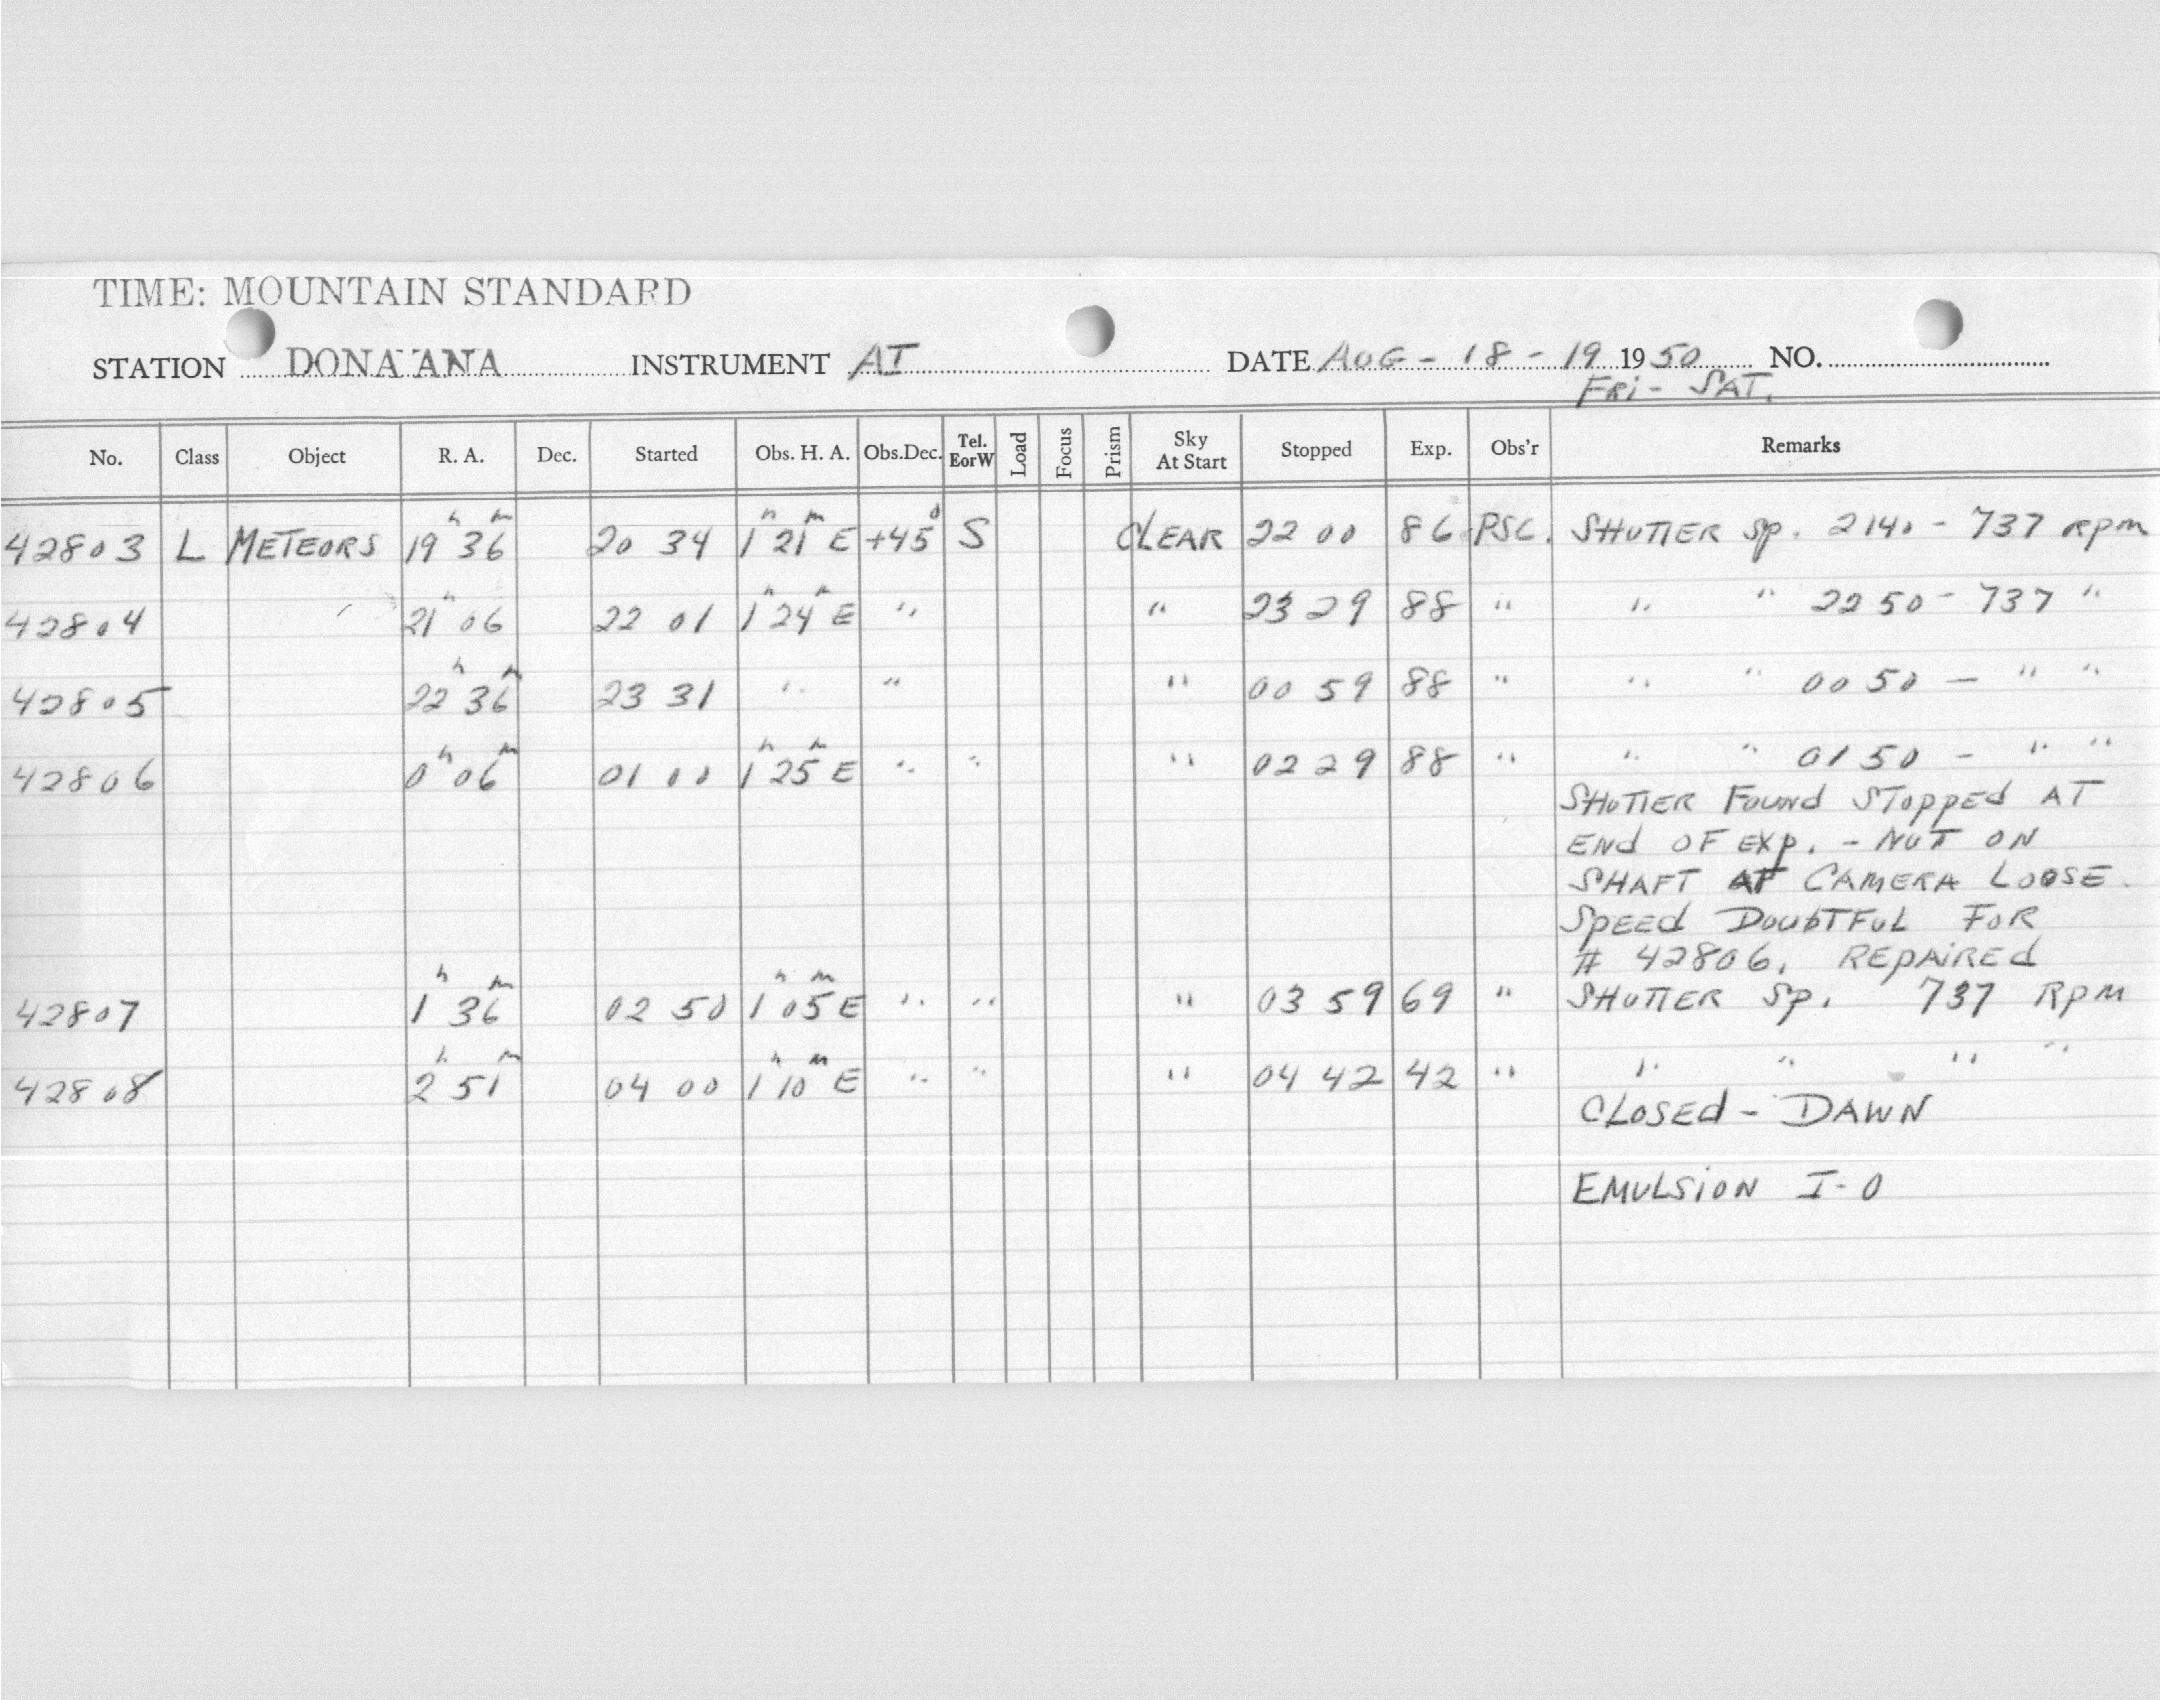 TIME: MOUNTAIN STANDARD
STATION DONA ANA INSTRUMENT AI DATE AUG - 18 - 19 1950 NO.
FRI - SAT.
No. Class Object R. A. Dec. Started Obs. H. A. Obs.Dec. Tel. EorW Load Focus Prism Sky At Start Stopped Exp. Obs'r Remarks
42803 L METEORS 19h 36m 20 34 1h 21m E +45° S CLEAR 22 00 86 PSC. SHUTTER Sp. 2140 - 737 RPM
42804 21h 06 22 01 1h 24m E " " 23 29 88 " " " 22 50 - 737 "
42805 22h 36m 23 31 " " " 00 59 88 " " " 00 50 - " "
42806 0h 06m 01 00 1h 25m E " " " 02 29 88 " " " 01 50 - " "
SHUTTER FOUND STOPPED AT
END OF EXP. - NUT ON
SHAFT AT CAMERA LOOSE.
SPEED DOUBTFUL FOR
# 42806. REPAIRED
42807 1h 36m 02 50 1h 05m E " " " 03 59 69 " SHUTTER Sp. 737 RPM
42808 2h 51m 04 00 1h 10m E " " " 04 42 42 " " " " "
CLOSED - DAWN
EMULSION I-O